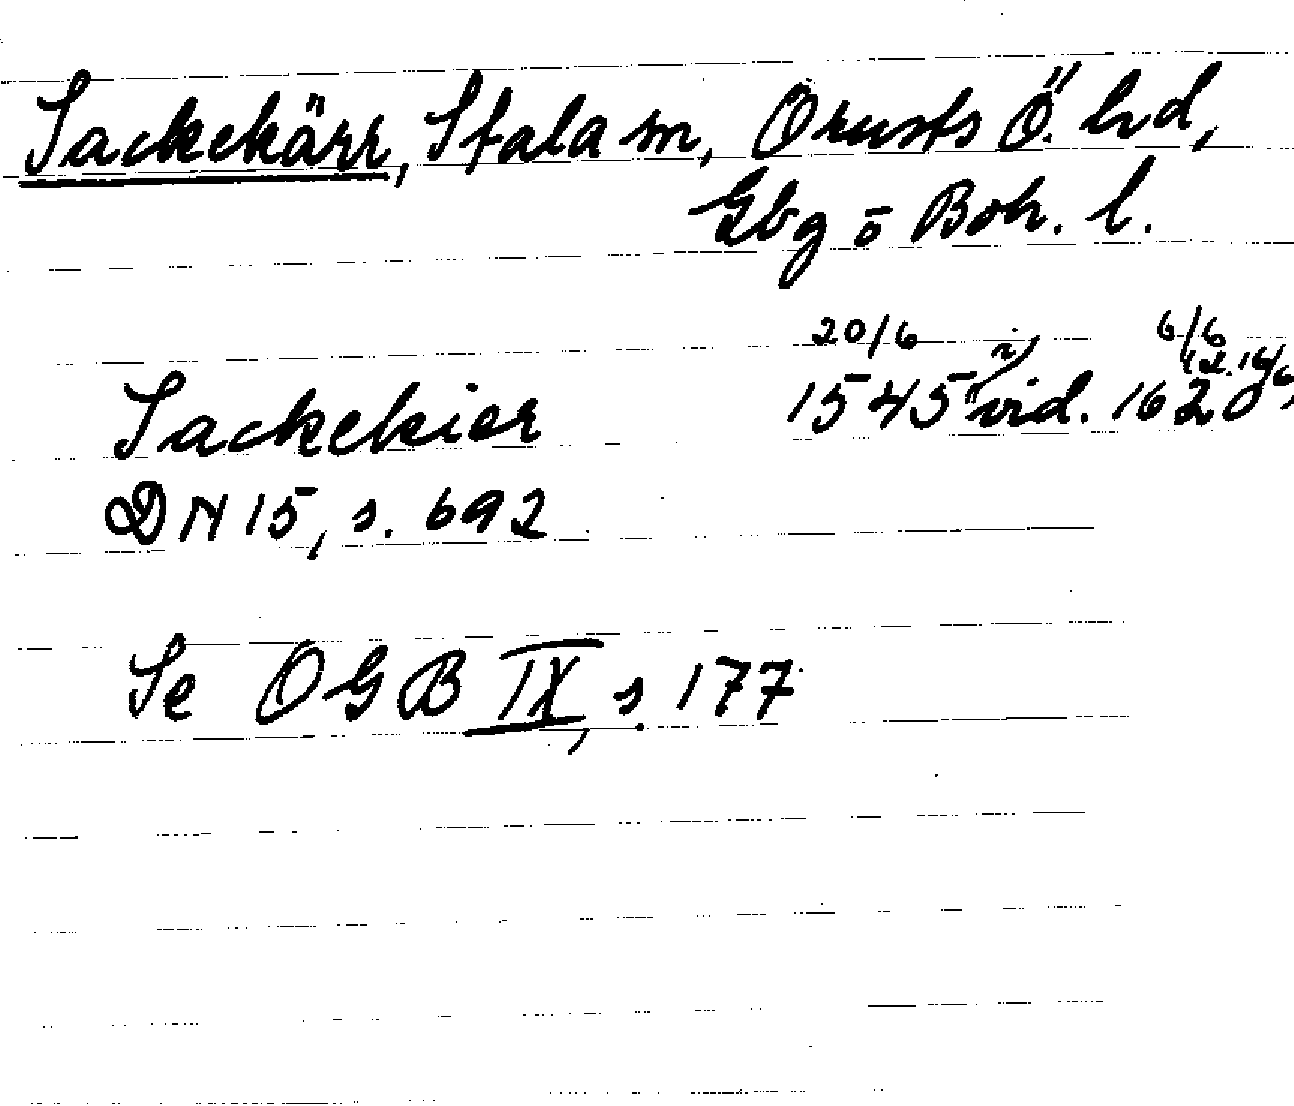 Sackekärr, Stala sn, Orusts Ö. hd,
Gbg o Boh. l.
20/6 6/6
Sackekier 1545 i vid. 1620
DN 15, s. 692
Se OGB IX, s. 177